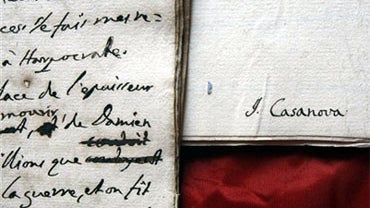 le fait
à Harpocrate.
lace de l'epaisseur
mourir
de Damien
llions que
la guerre, et on fit
J. Casanova